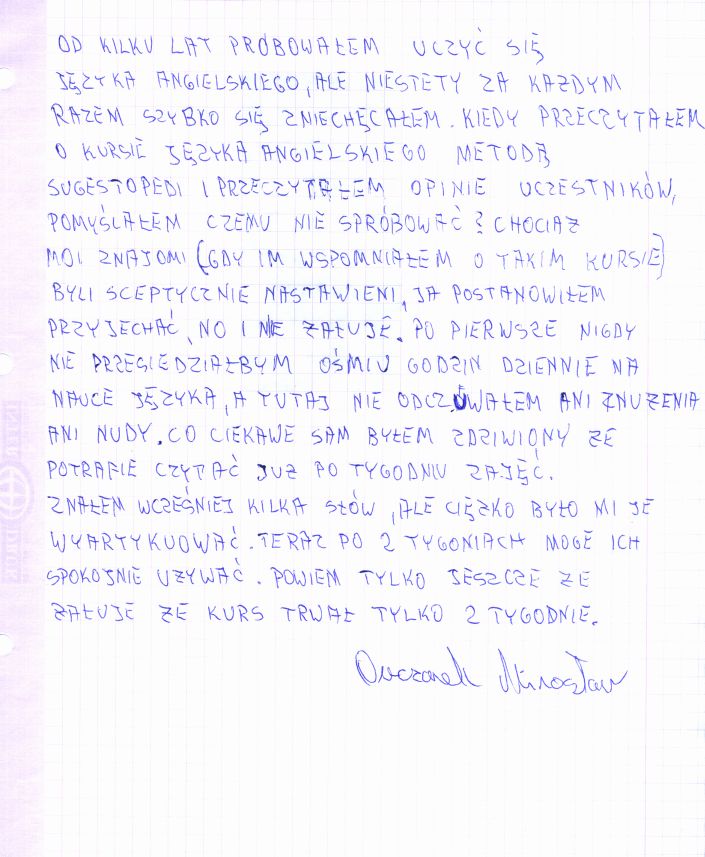 OD KILKU LAT PRÓBOWAŁEM UCZYĆ SIĘ
JĘZYKA ANGIELSKIEGO, ALE NIESTETY ZA KAŻDYM
RAZEM SZYBKO SIĘ ZNIECHĘCAŁEM. KIEDY PRZECZYTAŁEM
O KURSIE JĘZYKA ANGIELSKIEGO METODĄ
SUGESTOPEDI I PRZECZYTAŁEM OPINIE UCZESTNIKÓW,
POMYŚLAŁEM CZEMU NIE SPRÓBOWAĆ? CHOCIAŻ
MOI ZNAJOMI (GDY IM WSPOMNIAŁEM O TAKIM KURSIE)
BYLI SCEPTYCZNIE NASTAWIENI, JA POSTANOWIŁEM
PRZYJECHAĆ, NO I NIE ŻAŁUJĘ. PO PIERWSZE NIGDY
NIE PRZESIEDZIAŁBYM OŚMIU GODZIN DZIENNIE NA
NAUCE JĘZYKA, A TUTAJ NIE ODCZUWAŁEM ANI ZNUŻENIA
ANI NUDY. CO CIEKAWE SAM BYŁEM ZDZIWIONY ŻE
POTRAFIE CZYTAĆ JUŻ PO TYGODNIU ZAJĘĆ.
ZNAŁEM WCZEŚNIEJ KILKA SŁÓW, ALE CIĘŻKO BYŁO MI JE
WYARTYKUOWAĆ. TERAZ PO 2 TYGONIACH MOGĘ ICH
SPOKOJNIE UŻYWAĆ. POWIEM TYLKO JESZCZE ŻE
ŻAŁUJE ŻE KURS TRWAŁ TYLKO 2 TYGODNIE.
Owczarek Mirosław